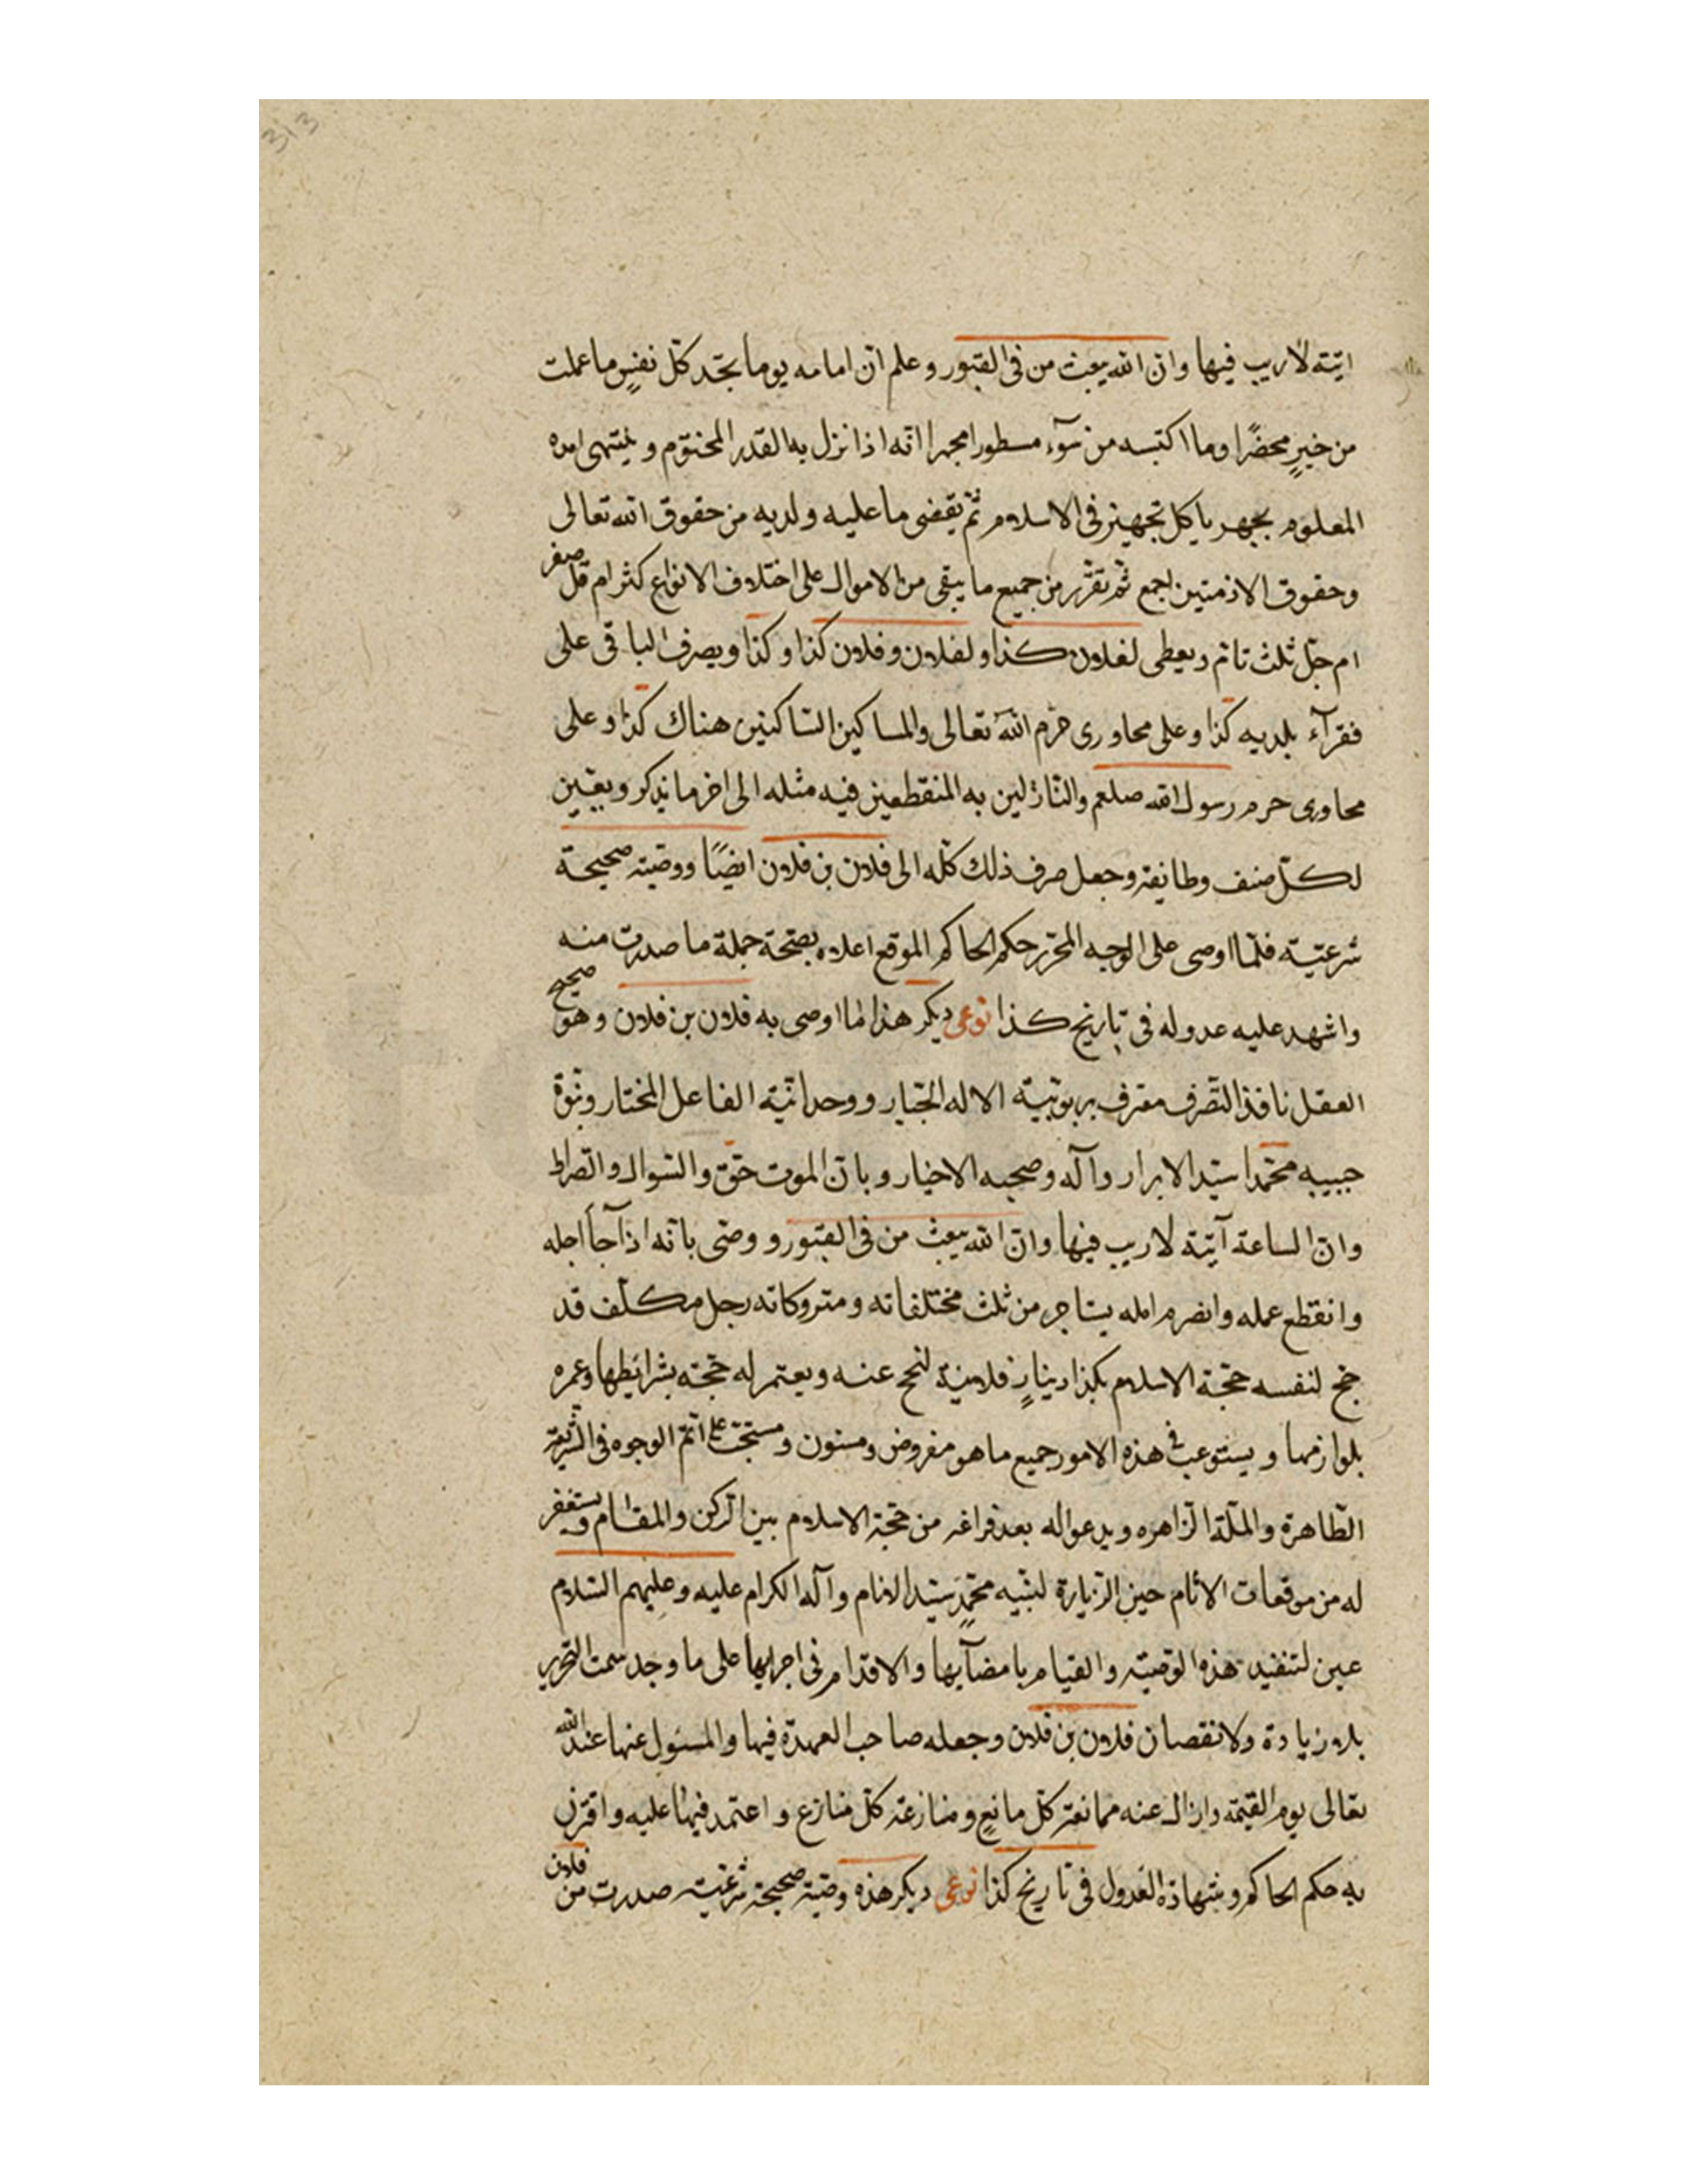 313
اتية لا ريب فيها وان الله يبعث من فى القبور وعلم ان امامه يوما تجد كل نفسٍ ما عملت
من خيرٍ محضرًا وما اكتسبه من سوٓء مسطورا مجهرا انه اذا نزل به القدر المختوم و ينتهى امده
المعلوم يجهر باكل تجهيز فى الاسلام ثم يقضى ما عليه ولديه من حقوق الله تعالى
وحقوق الادميين اجمع ثم تقرر من جميع ما يبقى من الاموال على اختلاف الانواع كثر ام قل صغر
ام جل ثلث تام ويعطى لفلان كذا ولفلان وفلان كذا وكذا ويصرف الباقى على
فقرآء بلديه كذا وعلى مجاورى حرم الله تعالى والمساكين الساكنين هناك كذا وعلى
مجاورى حرم رسول الله صلعم والنازلين به المنقطعين فيه مثله الى اخر ما يذكر ويعين
لكل صنف وطايفة وجعل صرف ذلك كله الى فلان بن فلان ايضًا ووصية صحيحة
شرعية فلما اوصى على الوجه المحرر حكم الحاكم الموقع اعلاه بصحة جملة ما صدرت منه
واشهد عليه عدوله فى تاريخ كذا نوعى ديكر هذا لما اوصى به فلان بن فلان وهو صحيح
العقل نافذ التصرف معترف بربوبية الاله الجبار ووحدانية الفاعل المختار ونبوة
حبيبه محمدا سيد الابرار وآله وصحبه الاخيار وبان الموت حق والسوال والصراط
وان الساعة آتية لا ريب فيها وان الله يبعث من فى القبور و وصى بانه اذا جآ اجله
وانقطع عمله وانصرم امله يستاجر من ثلث مختلفاته ومتروكاته رجل مكلف قد
حج لنفسه حجة الاسلام بكذا دينارٍ فلانية لنحج عنه ويعتمر له حجة بشرايطها وعمرة
بلوازمها ويستوعب فى هذه الامور جميع ما هو مفروض ومسنون ومستحب على اتم الوجوه فى الشريعة
الطاهرة والملة الزاهره ويدعوا له بعد فراغه من حجة الاسلام بين الركن والمقام ويستغفر
له من موقعات الاثام حين الزيارة لنبيه محمدٍ سيد الانام وآله الكرام عليه وعليهم السلام
عين لتنفيذ هذه الوصية والقيام بامضآيها والاقدام فى اجرايها على ما وجد سمت التحرير
بلا زيادة ولا نقصان فلان بن فلان وجعله صاحب العهدة فيها والمسئول عنها عند الله
تعالى يوم القيمة وازال عنه ممانعة كل مانعٍ ومنازعة كل منازع و اعتمد فيها عليه واقترن
به حكم الحاكم وشهادة العدول فى تاريخ كذا نوعى ديكر هذه وصية صحيحة شرعية صدرت من فلان